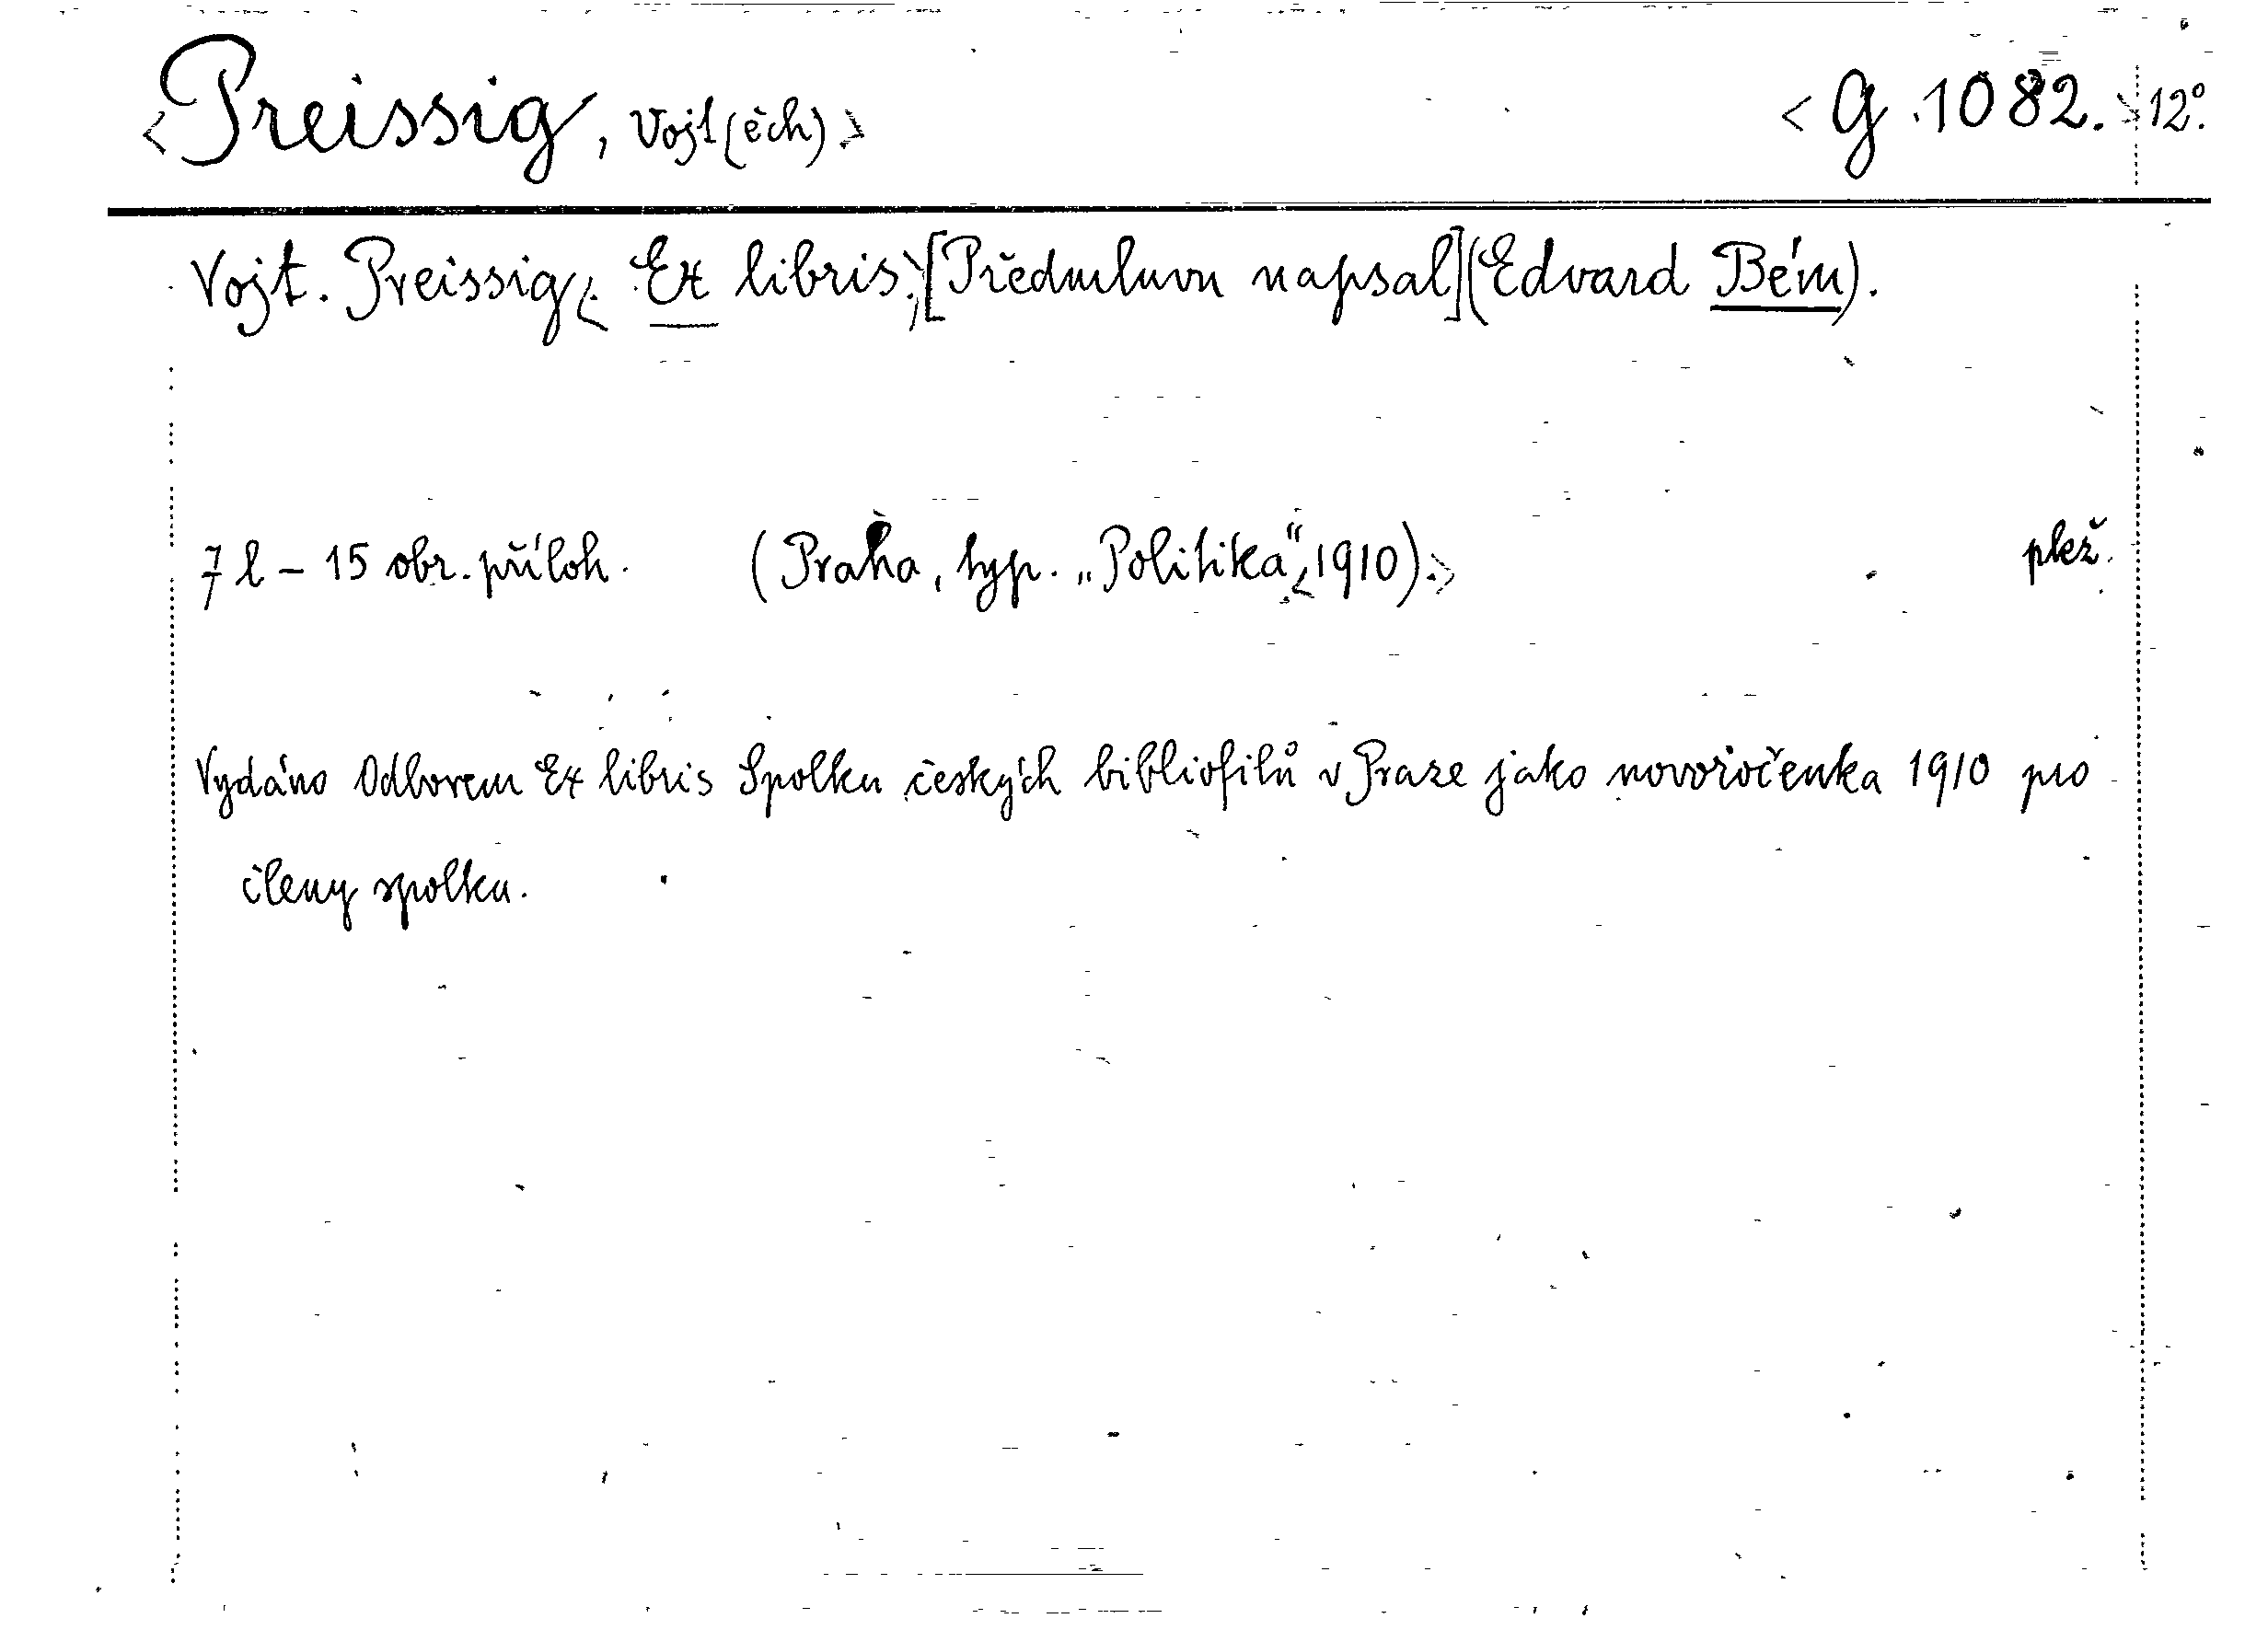 <Preissig, Vojt(ěch)> <G.1082.> 12°.
Vojt. Preissig<. Ex libris.>[Předmluvu napsal](Edvard Bém).
7 l – 15 obr. příloh. (Praha, typ. „Politika“,<1910).> plež.
Vydáno Odborem Ex libris Spolku českých bibliofilů v Praze jako novoročenka 1910 pro
členy spolku.